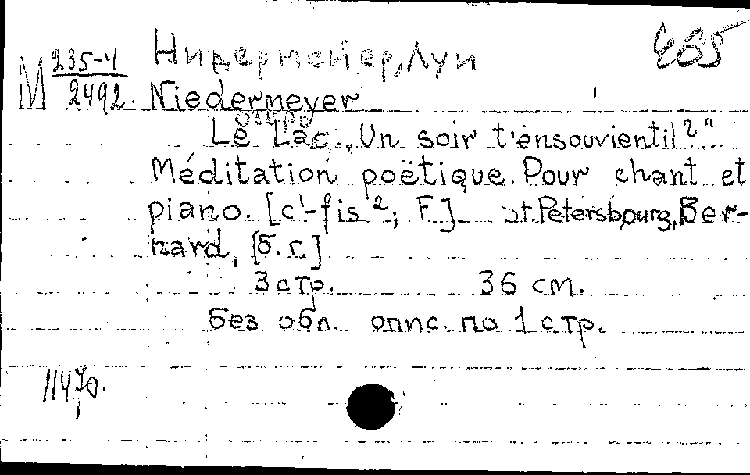 М 235-4 Нидермейер, Луи 485
2492 Niedermeyer
Le Lac „Un soir t'ensouvientil?"
Méditation poëtique. Pour chant et
piano. [c¹-fis²; F] St. Petersbourg, Ber-
nard, [б. г.]
3 стр. 36 см.
Без обл. опис. по 1 стр.